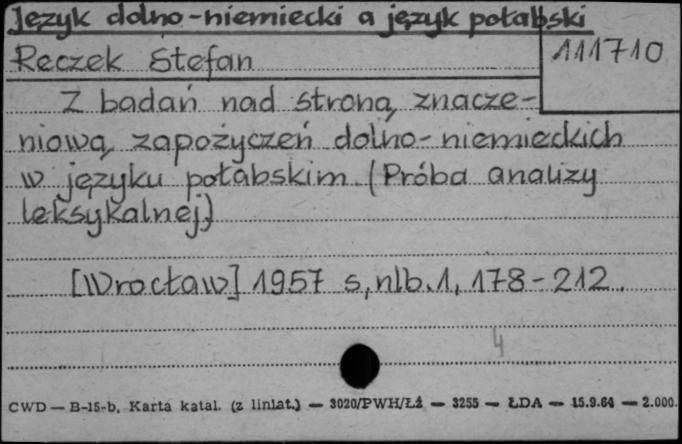 Język dolno-niemiecki a język połabski
Reczek Stefan
111710
Z badań nad stroną znacze-
niową zapożyczeń dolno-niemieckich
w języku połabskim. (Próba analizy
leksykalnej)
[Wrocław] 1957 s, nlb. 1, 178-212.
4
CWD — B-15-b. Karta katal. (z liniat.) — 3020/PWH/Łż — 3255 — ŁDA — 15.9.64 — 2.000.